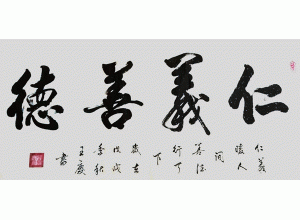 仁義善德
仁義
暖人
间
善德
行天
下
歲在
戊戌
季秋
王慶
書